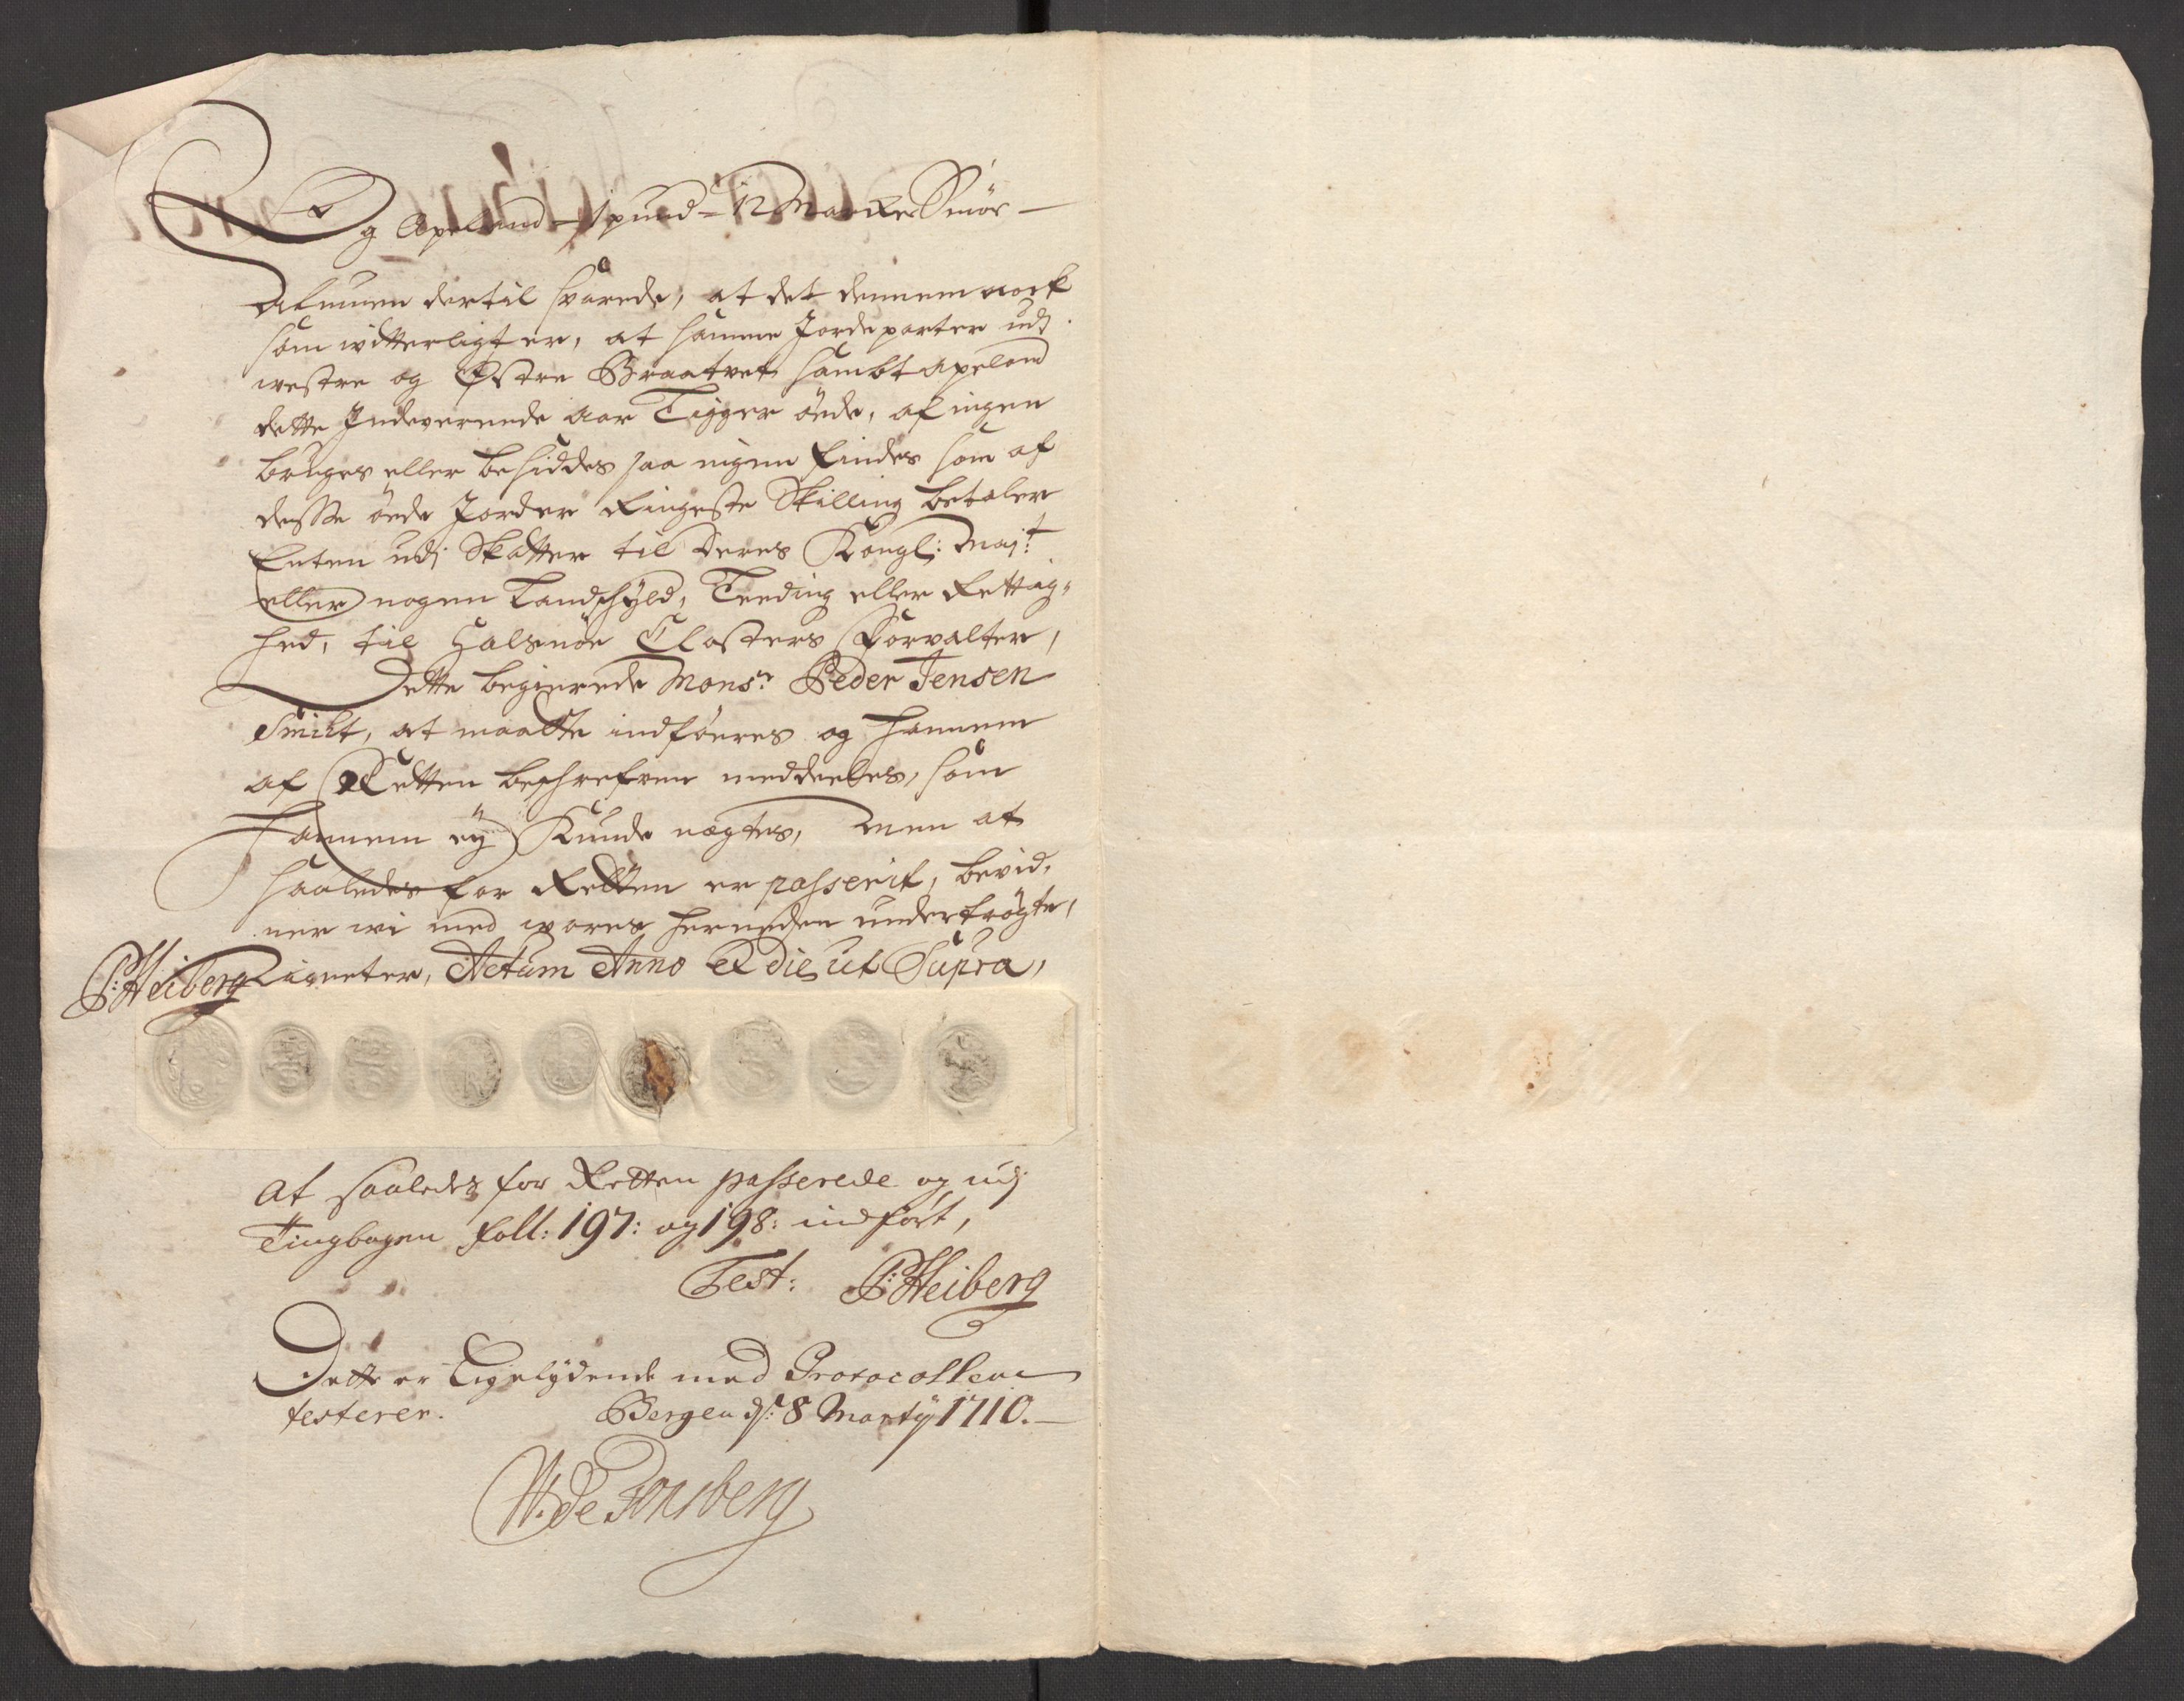 Og Apeland - 1 pund - 12 Marker Smör -
Almuen dertil svarede, at det dennem nock
som witterligt er, at samme Jordeparter udj
westre og Østre Braatvet sambt Apeland
dette Indeværende aar Ligger öede, af ingen
bruges eller besiddes saa ingen findes som af
desse öede Jorder Ringeste Skilling betaler
Enten udj Skatter til Deres Kongl: Maj:t
eller nogen Landschyld, Leeding eller Rettig-
hed, til Halsnöe Closters Forvalter,
Dette begierede Mons:r Peder Jensen
Smidt, at maatte indföeres og hannem
af Retten beschrefven meddeeles, som
hannem ey Kunde nægtes, Men at
saaledes for Retten er passerit, bevid-
ner wi med wores herneden undertrögte,
P: Heiberg Signeter, Actum Anno et die ut Supra,
At saaledes for Retten passerede og udj
Tingbogen foll: 197: og 198: indfört,
Test: P: Heiberg
Dette er Ligelydende med Protocollen
testerer. Bergen d: 8 Marty 1710. -
W. de Tonsberg